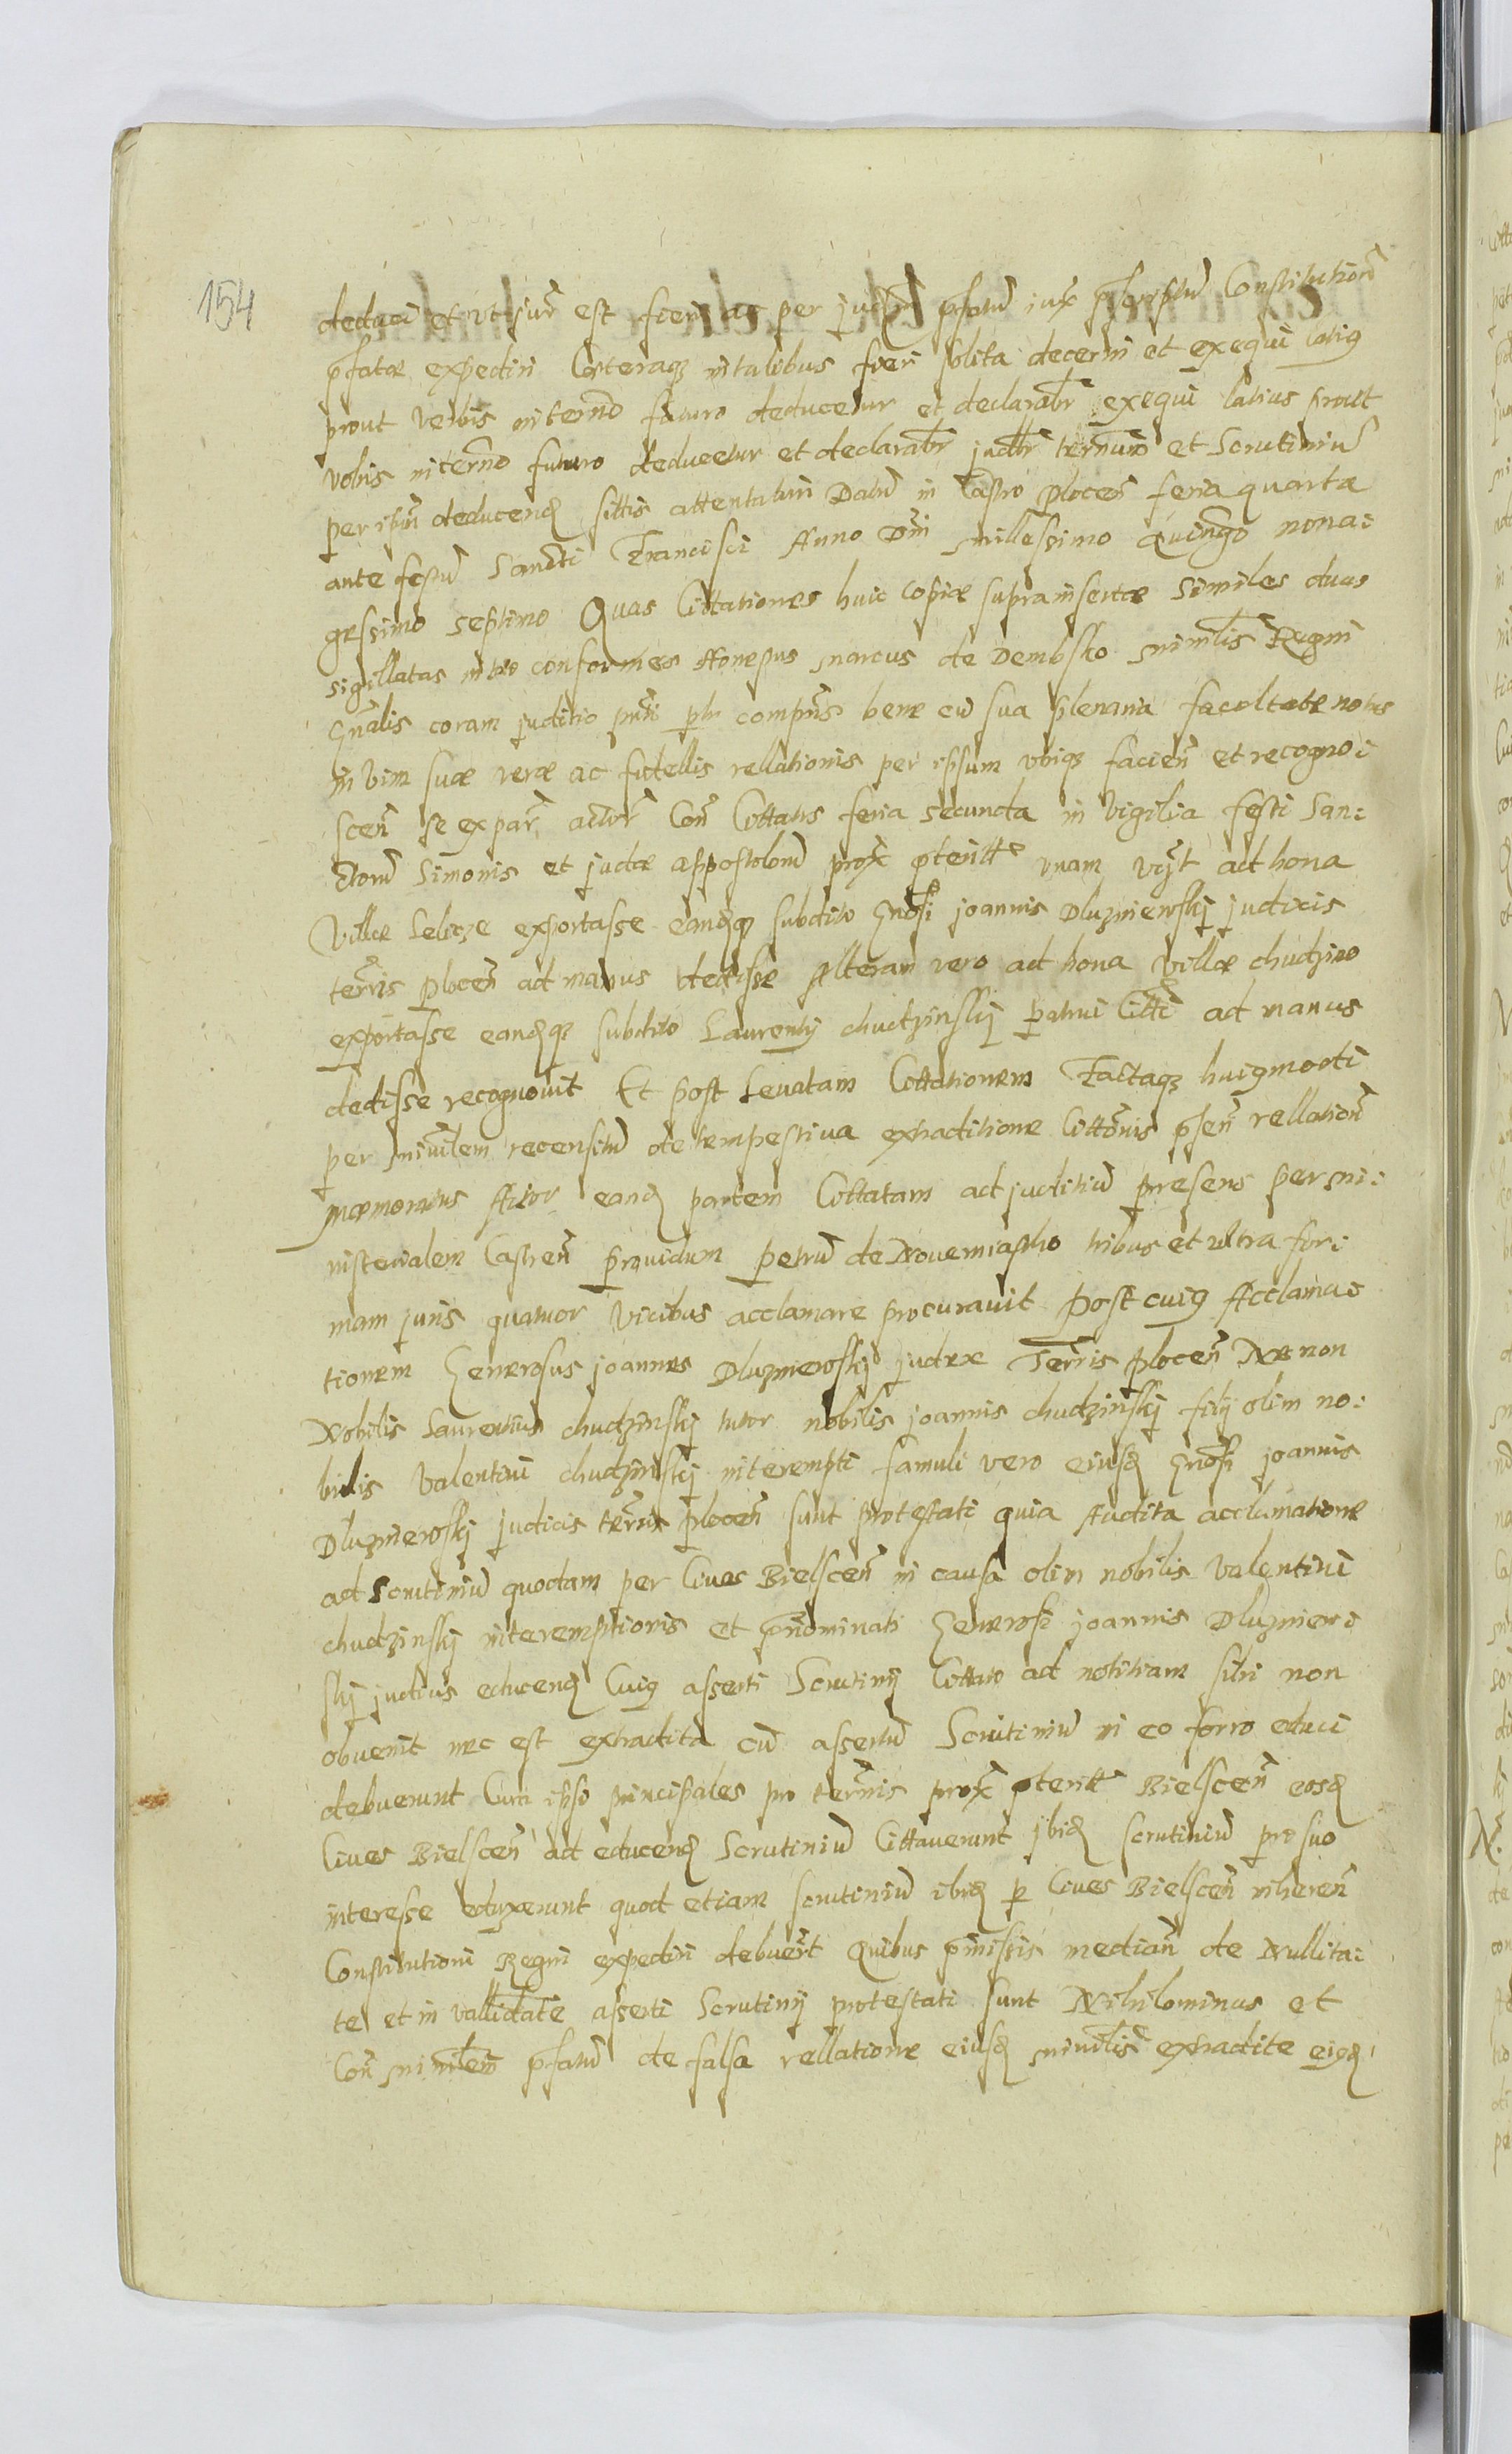 154
deduci et uti jur̃ est fieri ac per judm̃ p̃fatũ iux̃ p̃scriptũ Constitution̄
p̃fatæ expediri Cæteraqꝫ in talibus fieri solita decerni et exequi latiꝰ
prout verbis in termõ futuro deducetur et declarabr̃ exequi latius prout
vobis in termõ futuro deducetur et declarabr̃ judtr̃ terminum et Scrutiniũ
per ipsũ deducenđ sittis attentaturi Datũ in Castro plocen̄ feria quarta
ante festũ Sancti Francisci Anno Dm̃ millessimo Quingõ nona:
gessimo septimo Quas Cittationes huic copiæ suprainsertæ similes duas
sigillatas inter conformes Honestus marcus de Dembsko minlis̃ Regni
Gñalis coram juditio pñti plr̃ compñs bene cũ sua plenaria facoltate notus
in vim suæ veræ ac fidellis rellationis per ipsum ubiqꝫ facien̄ et recogno:
scen̄ se ex par̃ actor̃ Con̄ Cittatis feria secunda in vigilia festi San:
ctorũ Simonis et judæ appostolorũ prox̃ pterittæ unam vꝫt ad bona
Villæ Lelicze exportasse eandqꝫ subdito Gnõsi joannis Dluzniewskij judicis
terris̃ plocen̄ ad manus dedisse Alteram vero ad bona villæ chudzino
exportasse eandqꝫ subdito Laurentij chudzinskij patrui Citti̇̄ ad manus
dedisse recognovit Et post Levatam Cittationem Factaqꝫ huiꝰmodi
per minĩlem recensitũ de tempestiva extraditione Citt̃onis p̃sen̄ rellation̄
memoratus Actor eanđ partem Cittatam ad juditiũ præsens per mi:
nisterialem Castren̄ providum petrũ de Novemiastho tribus et ultra for:
mam juris quatuor vicibus acclamare procuravit Post cuiꝰ Acclama:
tionem Generosus joannes Dluzniewskij judex Terris̃ plocen̄ Nec non
Nobilis Laurentius chudzinskij tutor nobilis joannis chudzinskij filij olim no:
bilis Valentini chudzinskij interempti famuli vero eiusđ Gnõsi joannis
Dluzniewskij judicis terris̃ plocen̄ sunt protestati quia Audita acclamatione
ad Scrutiniũ quodam per Cives Bielscen̄ in causa olim nobilis Valentini
chudzinskij interemptionis et pñominati Generosi joannis Dluzniew:
skij judicis educenđ Cuiꝰ asserti Scrutinij Cittatio ad notitiam sibi non
obvenit nec est extradita cũ assertũ Scrutiniũ in eo forro educi
debuerunt Cum ipsi principales pro termis̃ prox̃ pteritt̃ Bielscen̄ eosđ
Cives Bielscen̄ ad educenđ Scrutiniũ Cittaverunt ibiđ scrutiniũ pro suo
interesse eduxerunt quod etiam scrutiniũ ibiđ p Cives Bielscen̄ inheren̄
Constitutioni Regni expediri debuer̃t Quibus pmissis median̄ de Nullita:
te et in valliditate asserti Scrutinij protestati sunt Nihilominus et
Con̄ minilem̃ p̃fatũ de falsa rellatione eiusđ minilis̃ extradite eiꝰđ